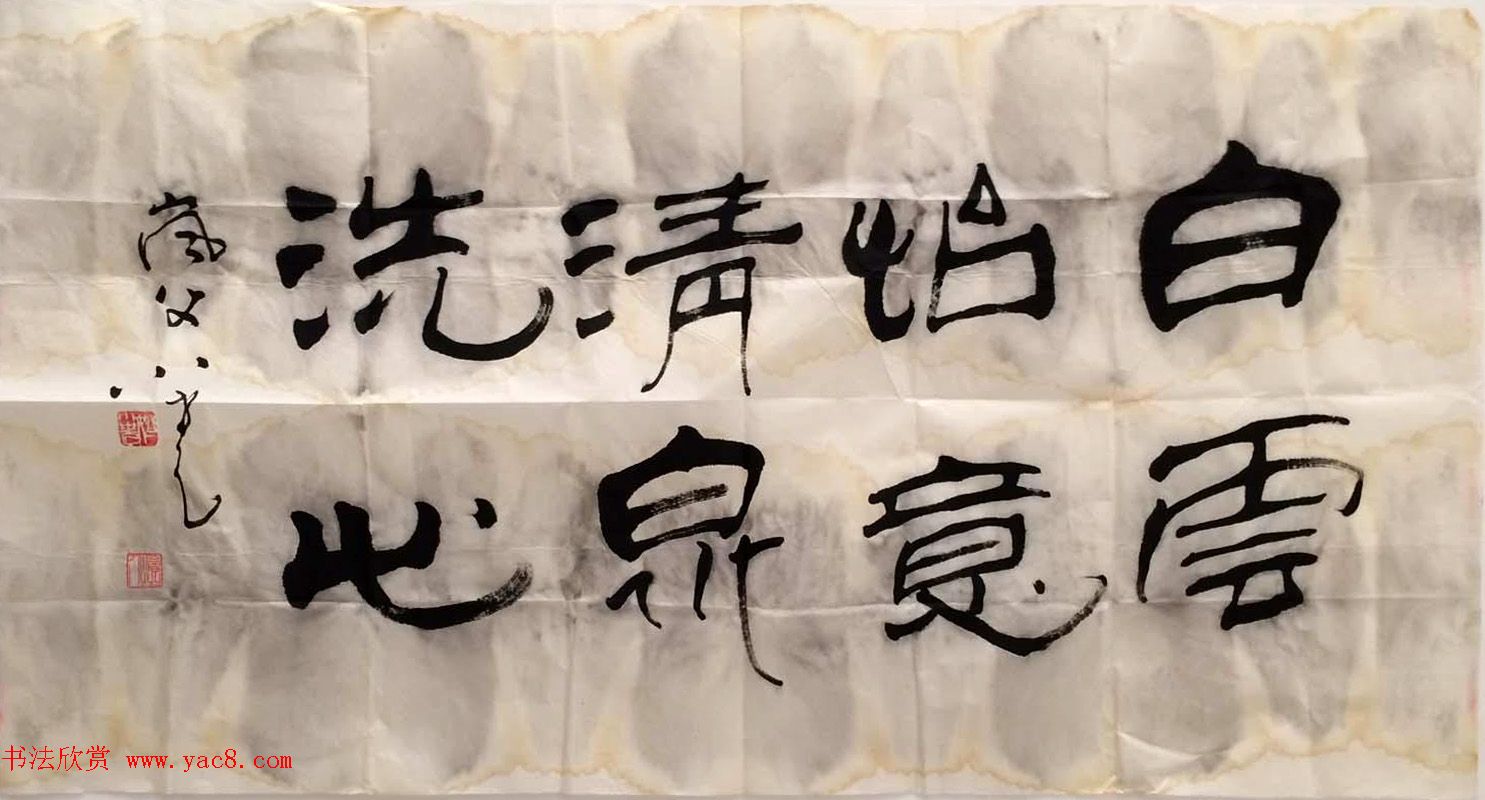 白雲
怡意
清泉
洗心
嵐父
书法欣赏 www.yac8.com